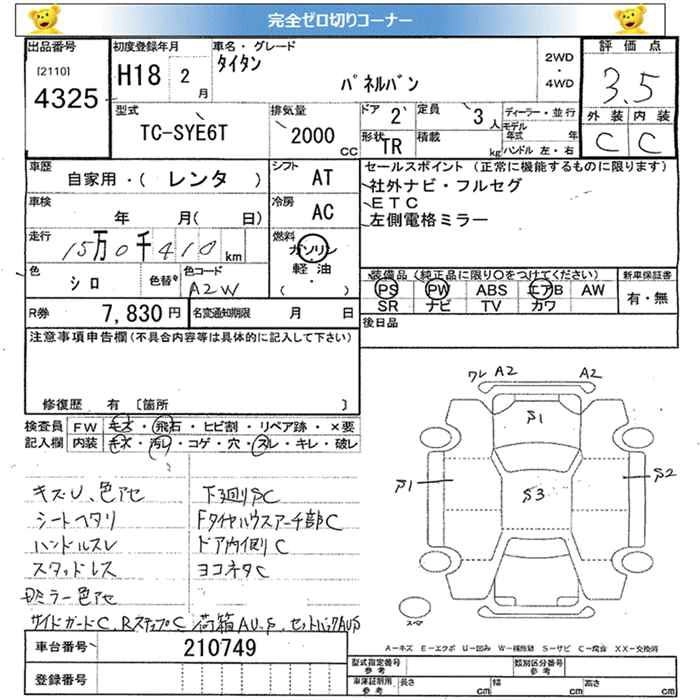 完全ゼロ切りコーナー
出品番号 初度登録年月 車名・グレード 評価点
[2110] 4325 H18 2月 タイタン パネルバン 2WD・4WD 3.5
外装 内装
C C
型式 排気量 ドア 定員 ディーラー・並行
TC-SYE6T 2000CC 2 3人 モデル年式 年
形状 TR 積載 kg ハンドル 左・右
車歴 シフト セールスポイント (正常に機能するものに限ります)
自家用・(レンタ) AT 社外ナビ・フルセグ
車検 冷房 ETC
年 月( 日) AC 左側電格ミラー
走行 燃料
15万0千410km ガソリン
軽油
( ・ )
色 色替 色コード
シロ A2W
装備品 (純正品に限り○をつけてください) 新車保証書
PS PW ABS エアB AW 有・無
SR ナビ TV カワ
R券 7,830円 名変通知期限 月 日 後日品
注意事項申告欄 (不具合内容等は具体的に記入して下さい)
修復歴 有 [箇所 ]
検査員 FW キズ・飛石・ヒビ割・リペア跡・×要
記入欄 内装 キズ・汚レ・コゲ・穴・スレ・キレ・破レ
キズU、色アセ 下回りSC
シートヘタリ Fタイヤハウスアーチ部C
ハンドルスレ ドア内側C
スタッドレス ヨコネタC
ミラー色アセ
サイドガードC、RステップC 荷箱AU.S、セットバックAUS
ワレ A2 A2
S1
S1 S2
S3
スペア
A－キズ E－エクボ U－凹み W－補修跡 S－サビ C－腐食 XX－交換済
車台番号 210749
登録番号
型式指定番号 参考 類別区分番号 参考
車庫証明用 参考 長さ cm 幅 cm 高さ cm